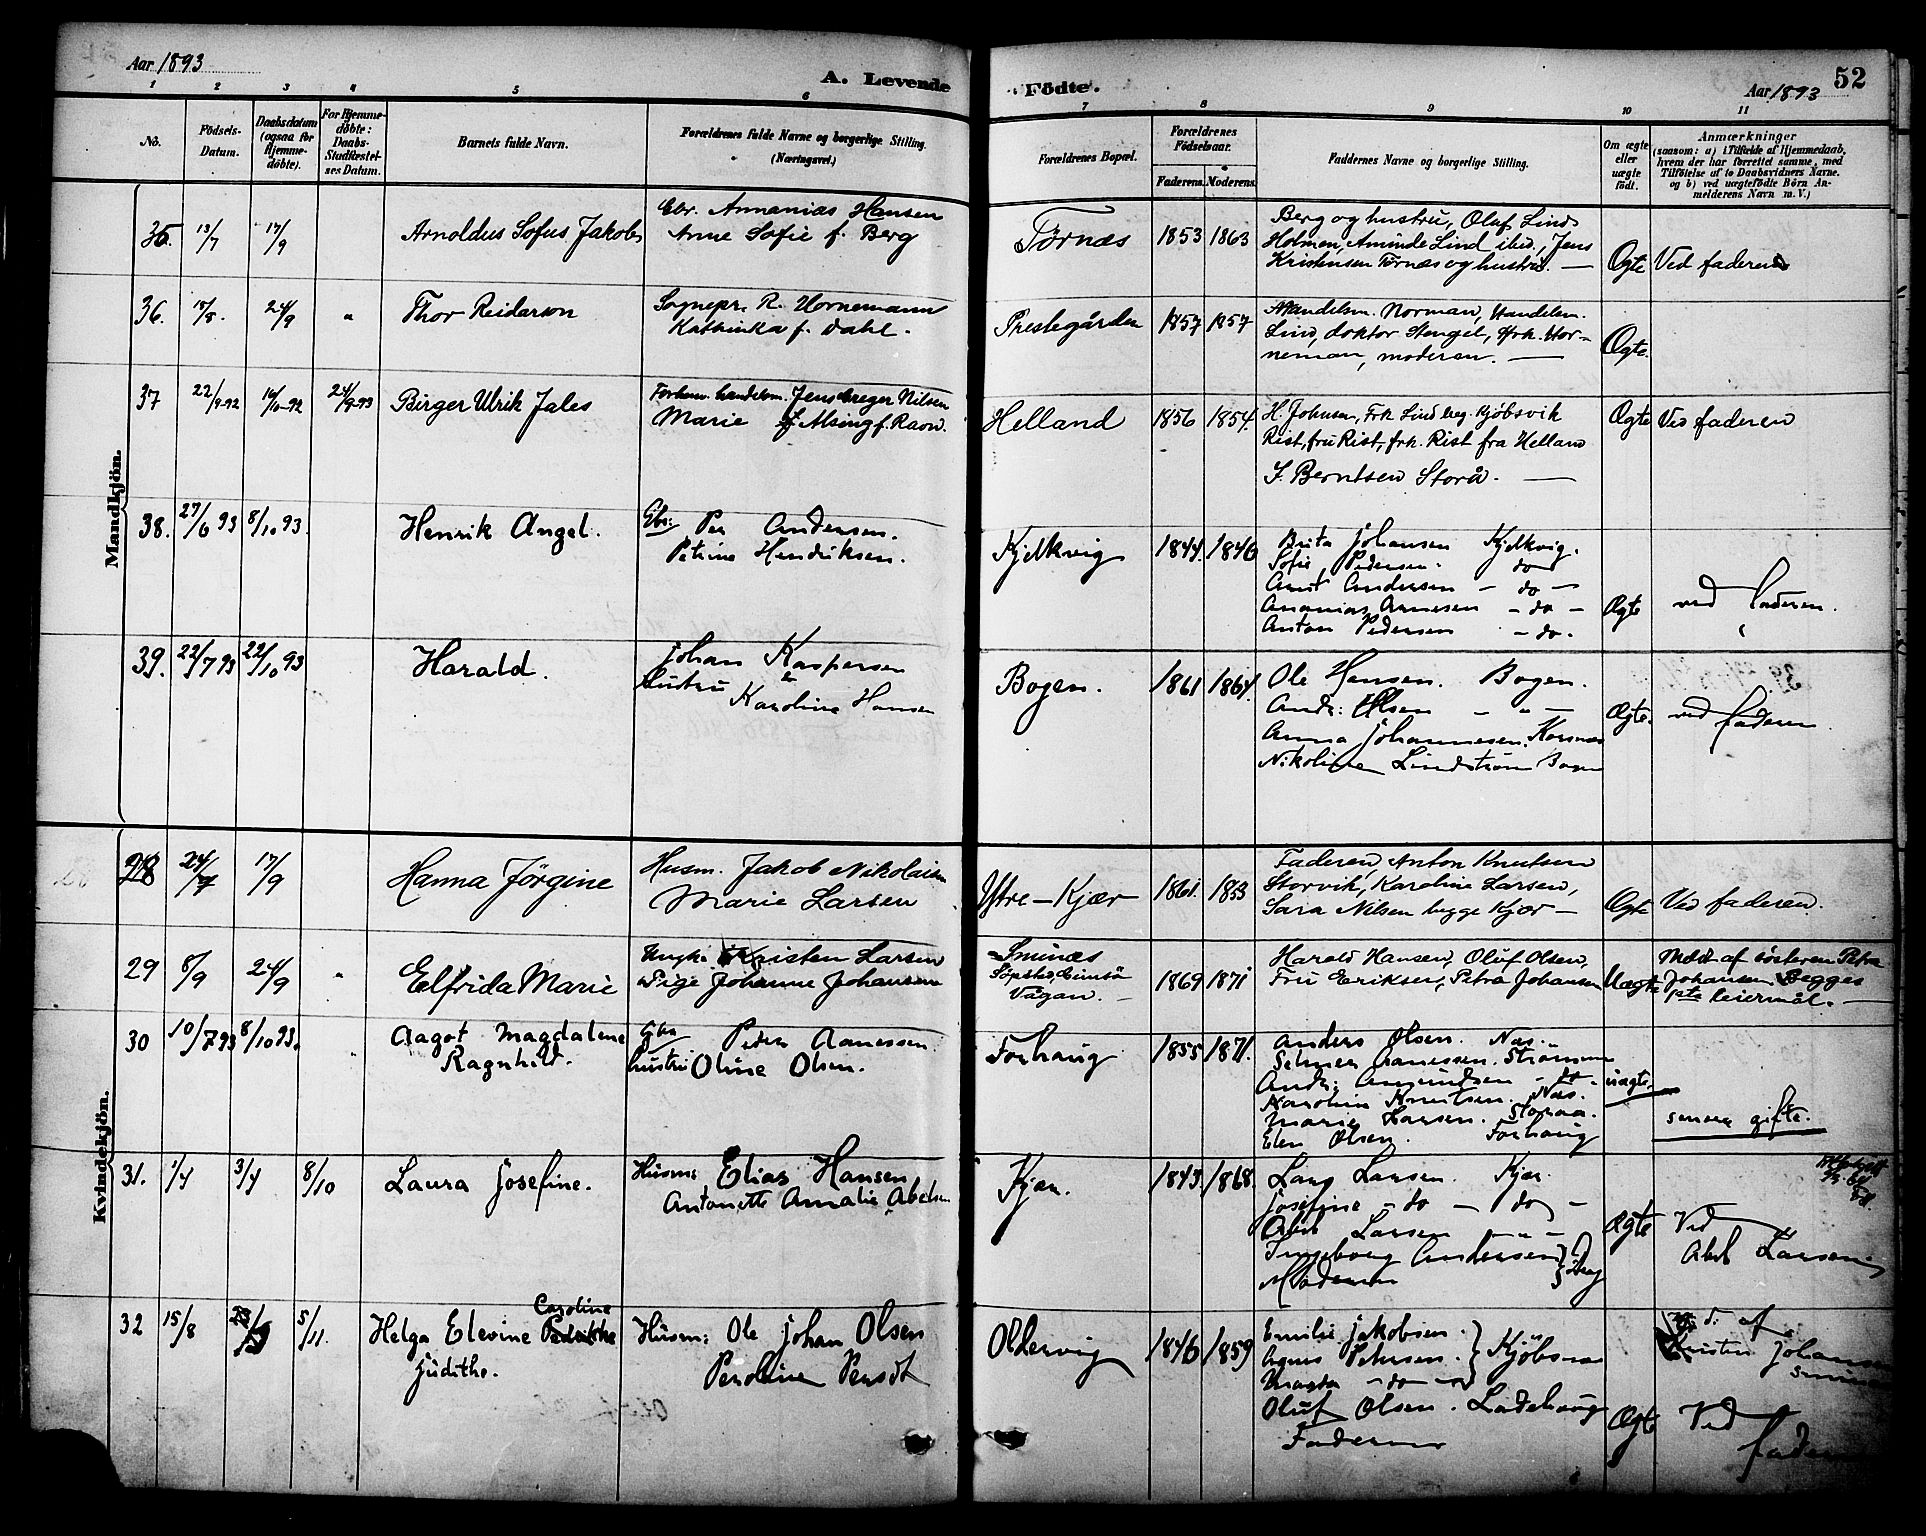 Aar 1893
A. Levende
Födte.
Aar 1893
52
1 2 3 4 5 6 7 8 9 10 11
No.
Födsels-
Datum.
Daabsdatum
(ogsaa for
Hjemme-
döbte).
For Hjemme-
döbte:
Daabs-
Stadfæstel-
ses Datum.
Barnets fulde Navn.
Forældrenes fulde Navne og borgerlige Stilling.
(Næringsvei.)
Forældrenes Bopæl.
Forældrenes
Födselsaar.
Faderens. Moderens.
Faddernes Navne og borgerlige Stilling.
Om ægte
eller
uægte
födt.
Anmærkninger
(saasom: a) i Tilfælde af Hjemmedaab,
hvem der har forrettet samme, med
Tilföielse af to Daabsvidners Navne.
og b) ved uægtefödte Börn An-
melderens Navn m. V.)
Mandkjön.
35. 13/7 17/9 Arnoldus Sofus Jakobs
Gbr. Annanias Hansen
Anne Sofie f. Berg
Törnæs 1853 1863
Berg og hustru, Oluf Lind
Holmen, Aminde Lind ibid., Jens
Kristensen Törnæs og hustru. —
Ægte Ved faderen
36. 18/8. 24/9 " Thor Reidarson
Sognepr. R. Hornemann
Kathinka f. Dahl.
Prestegården 1857 1857
Handelsm. Norman, Handelsm.
Lind, doktor Stengel, Frk. Hor-
neman, moderen. —
Ægte.
37 22/9-92 16/10-92 24/9-93 Birger Ulrik Jales
Forhenv. handelsm. Jens Greger Nilsen
Marie Alsing f. Ravn.
Helland 1856 1854
H. Johnsen, Frk Lindberg. Kjöbsvik
Rist, fru Rist, frk. Rist fra Helland
J. Berntsen Storå. —
Ægte Ved faderen
38. 27/6 93 8/10 93. Henrik Angel.
Gbr: Per Andersen.
Petrine Hendriksen.
Kjelkvig 1844. 1846
Brita Johansen Kjelkvig.
Sofie Pedersen. do
Arnt Andersen — do —
Ananias Arnesen — do —
Anton Pedersen — do.
Ægte ved faderen.
39. 22/7 93 22/10 93 Harald.
Johan Kaspersen
hustru &
Karoline Hansen
Bogen. 1861 1864.
Ole Hansen. Bogen.
Andr: Olsen — " —
Anna Johannesen. Korsnæs
Nikoline Lindstrøm Bogen
Ægte. ved faderen
Kvindekjön.
28 24/7 17/9 Hanna Jörgine
Husm. Jakob Nikolaisen
Marie Larsen
Ytre-Kjær 1861. 1853
Faderen, Anton Knutsen
Storvik, Karoline Larsen,
Sara Nilsen begge Kjær —
Ægte Ved faderen.
29 8/9 24/9 " Elfrida Marie
Ungk. Kristen Larsen
Pige Johanne Johansen
Smines
Vågan. —
1869 1871
Harald Hansen, Oluf Olsen,
Fru Eriksen, Petra Johansen
Uægte Meldt af søsteren Petra
Johansen Begges
1ste leiermål. —
30 10/7 93 8/10 93. Aagot Magdalene
Ragnhild.
Gbr Peder Aanessen
hustru Oline Olsen.
Forhaug 1855 1871.
Anders Olsen. Næs.
Selmer Aanessen. Strømmen
Andr: Amundsen
Karoline Knutsen. Næs.
Marie Larsen. Storaa.
Elen Olsen. Forhaug
uægte.
senere gifte.
31. 1/4 3/4 8/10 Laura Josefine.
Husm: Elias Hansen
Antonette Amalie Abelsen
Kjær. 1843. 1868.
Lars Larsen. Kjær.
Josefine — do — do —
Abel Larsen — " —
Ingeborg Andersen
Moderen
Ægte Ved
Abel Larsen
32 15/8 5/11. Helga Elevine Caroline
Judithe.
Husm: Ole Johan Olsen
Oldervig 1846 1859
Emilie Jakobsen.
Agnes Petersen.
Magda — do —
Kjöbsnes
Oluf Olsen. Ladehaug
Faderen
Ægte Ved
faderen